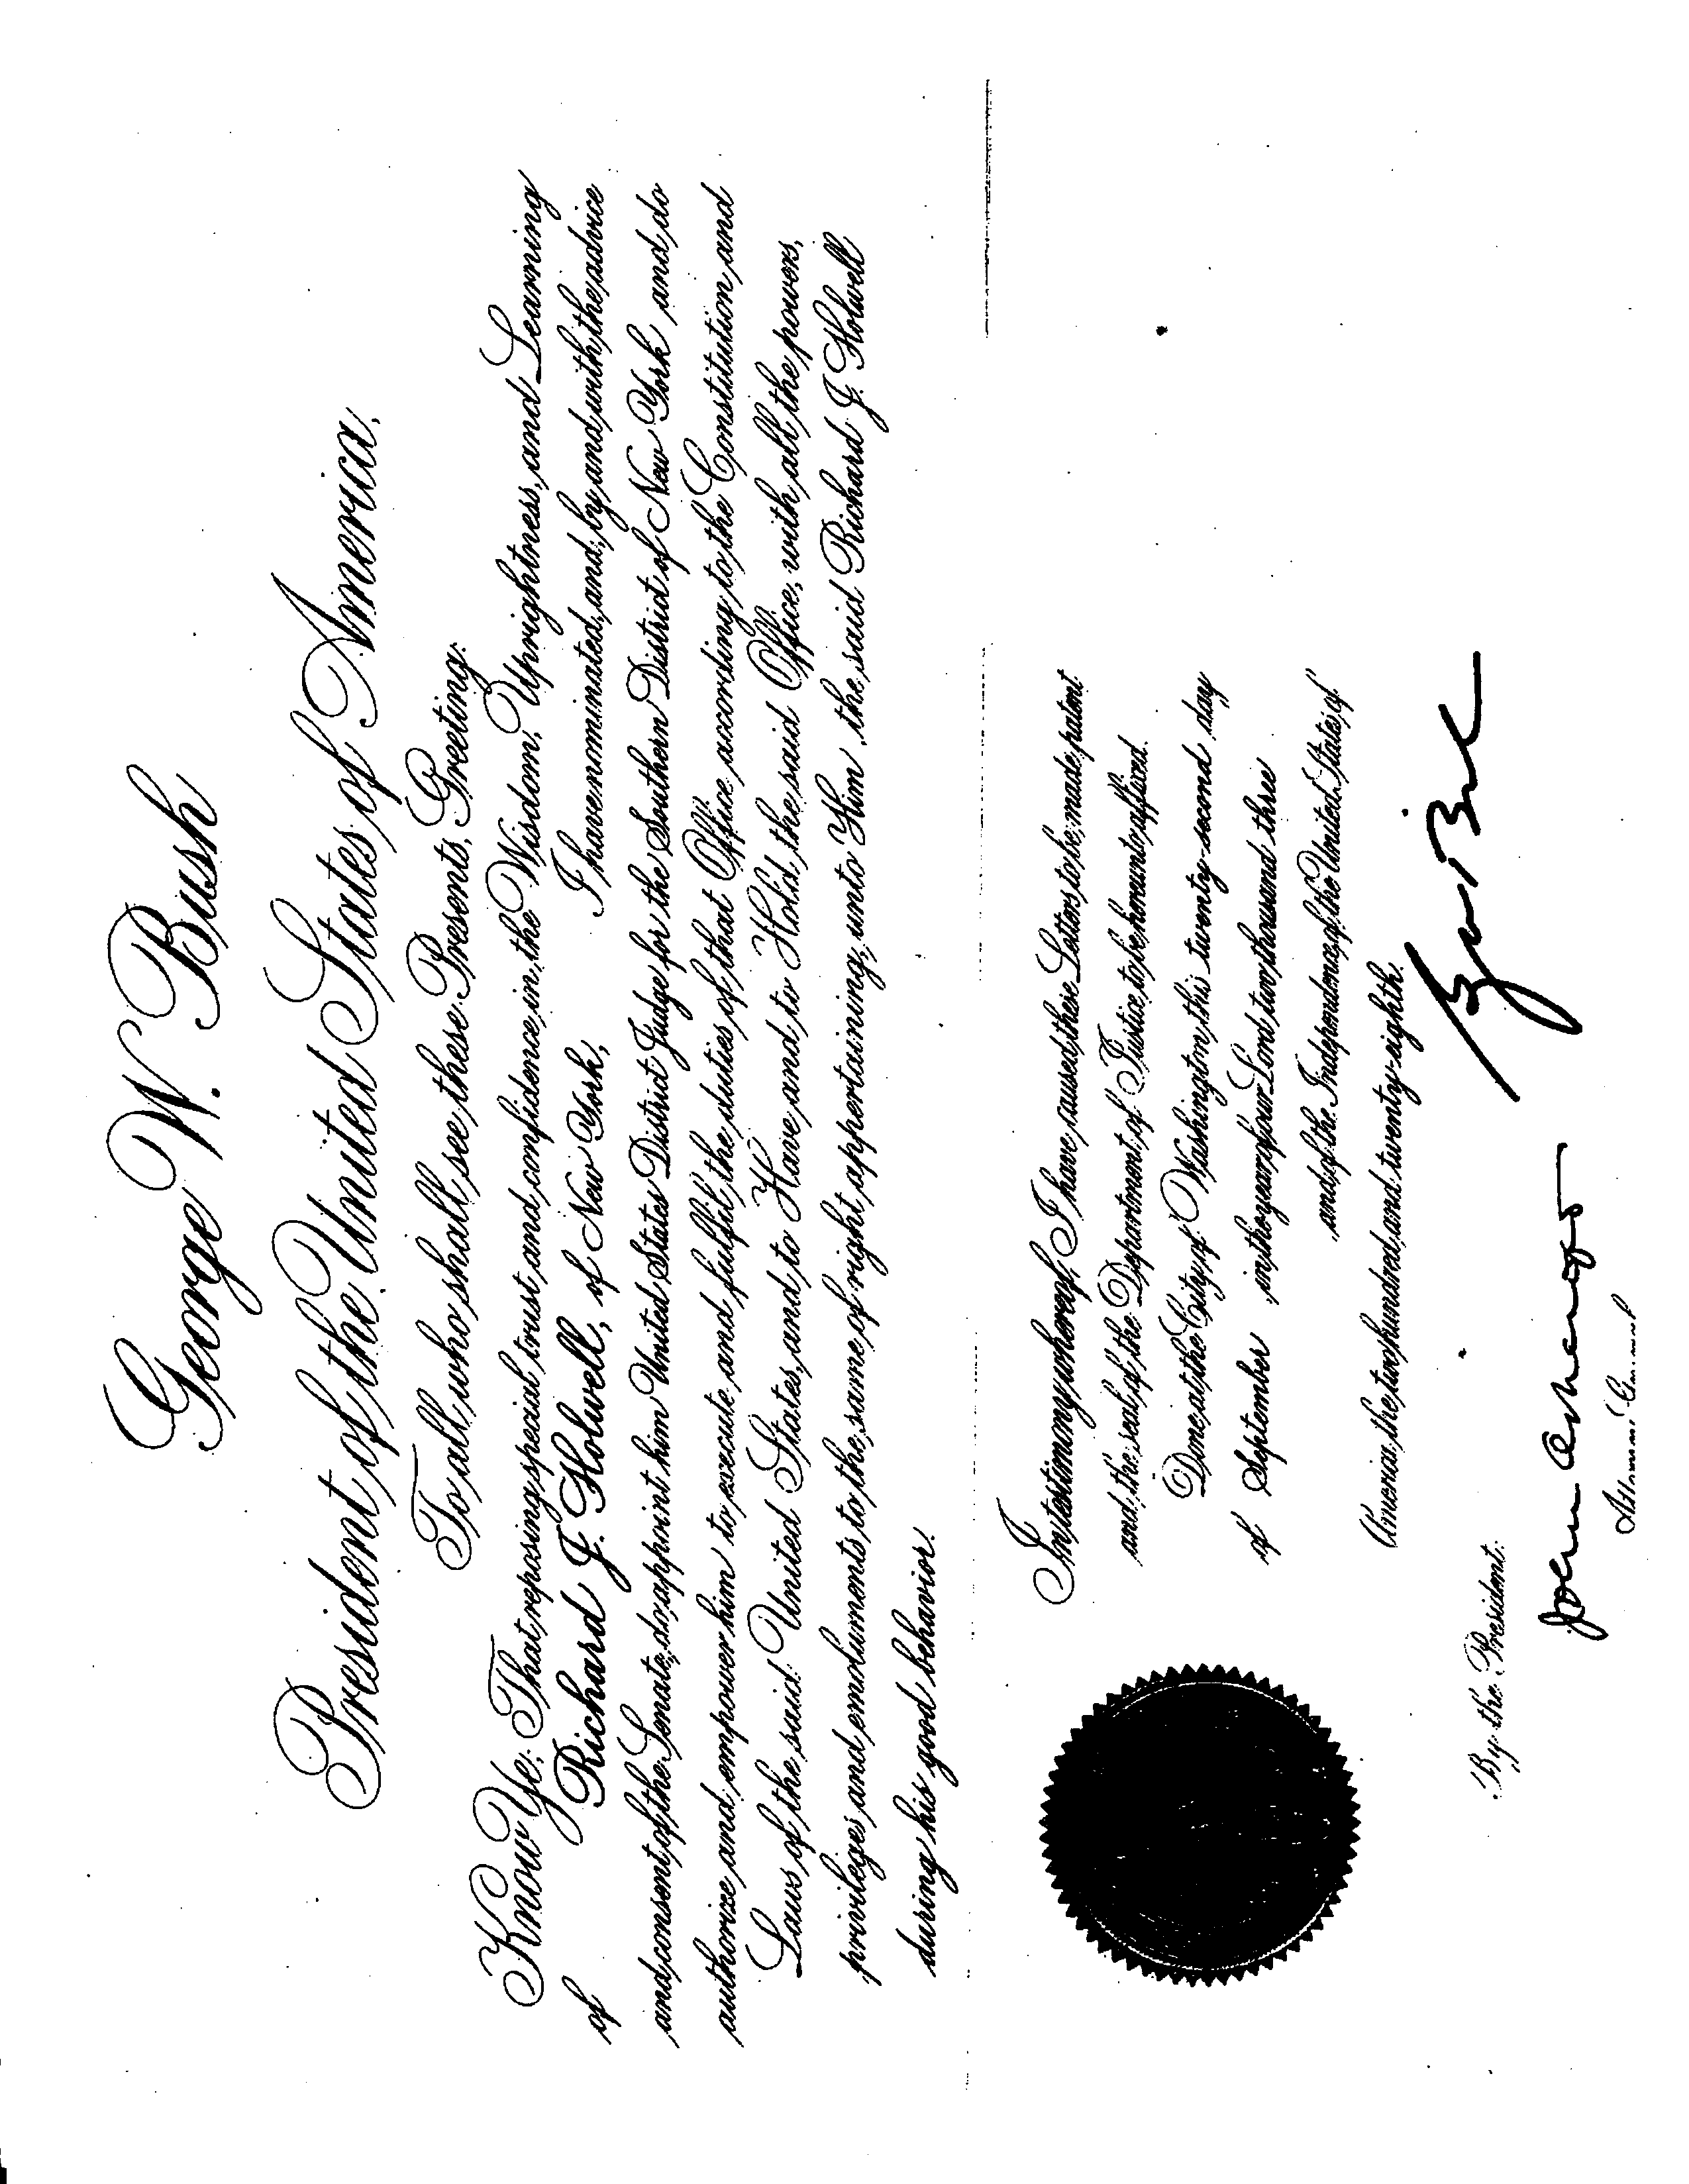 George W. Bush
President of the United States of America,
To all who shall see these Presents, Greeting:
Know Ye; That reposing special trust and confidence in the Wisdom, Uprightness, and Learning
of Richard J. Holwell, of New York, I have nominated, and, by and with the advice
and consent of the Senate, do appoint him United States District Judge for the Southern District of New York and do
authorize and empower him to execute and fulfil the duties of that Office according to the Constitution and
Laws of the said United States, and to Have and to Hold the said Office, with all the powers,
privileges and emoluments to the same of right appertaining, unto Him the said Richard J. Holwell
during his good behavior.
In testimony whereof, I have caused these Letters to be made patent
and the seal of the Department of Justice to be hereunto affixed.
Done at the City of Washington this twenty-second day
of September in the year of our Lord two thousand three
and of the Independence of the United States of
America the two hundred and twenty-eighth.
By the President:
John Ashcroft
Attorney General